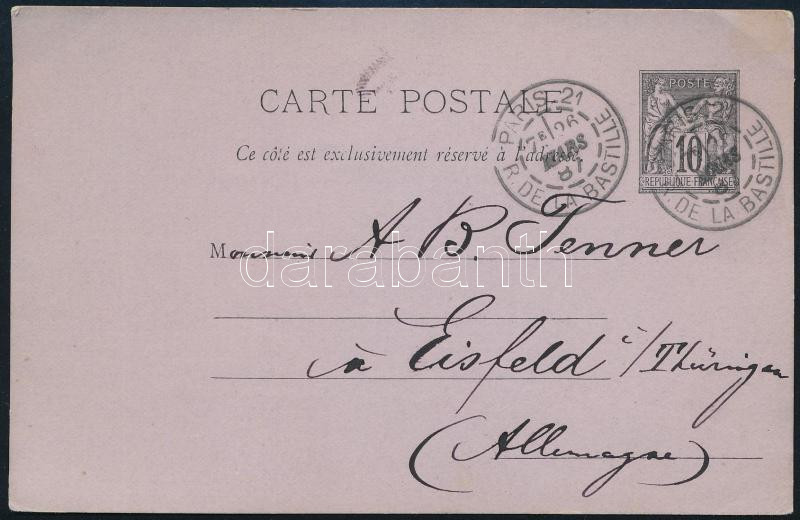 CARTE POSTALE
Ce côté est exclusivement réservé à l'adresse.
PARIS-21
26
MARS
87
R. DE LA BASTILLE
POSTE
10
REPUBLIQUE FRANÇAISE
DE LA BASTILLE
Monsieur A B. Tenner
à Eisfeld i/Thüringen
(Allemagne)
darabanth